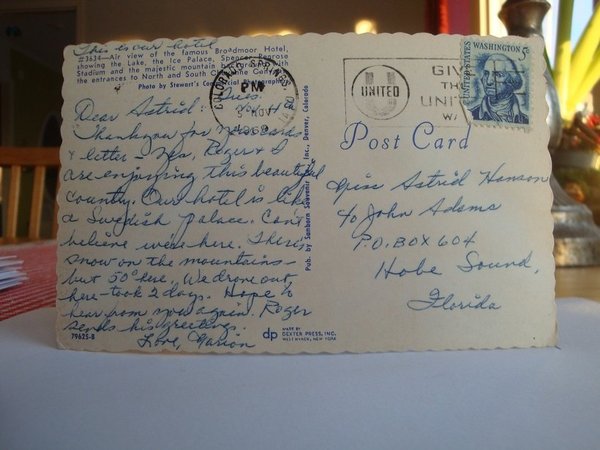 This is our hotel
#3634—Air view of the famous Broadmoor Hotel,
showing the Lake, the Ice Palace, Spencer Penrose
Stadium and the majestic mountain background. North
the entrances to North and South Cheyenne Canon.
Photo by Stewart's Commercial Photographers
Tues.
Nov. 4
Dear Astrid:
Thankyou for Nov. cards
& letter - Yes, Roger & I
are enjoying this beautiful
country. Our hotel is like
a Swedish Palace. Can't
believe we're here. There is
snow on the mountains -
but 50° here. We drove out
here - took 2 days. Hope to
hear from you again. Roger
sends his greetings.
Love, Marion
79625-B
Pub. by Sanborn Souvenir Co., Inc., Denver, Colorado
COLORADO SPRINGS, CO
PM
5 NOV
UNITED
GIVE
THE
UNITED
WAY
WASHINGTON 5c
UNITED STATES
Post Card
Miss Astrid Hanson
c/o John Adams
P.O. BOX 604
Hobe Sound,
Florida
dp
MADE BY
DEXTER PRESS, INC.
WEST NYACK, NEW YORK